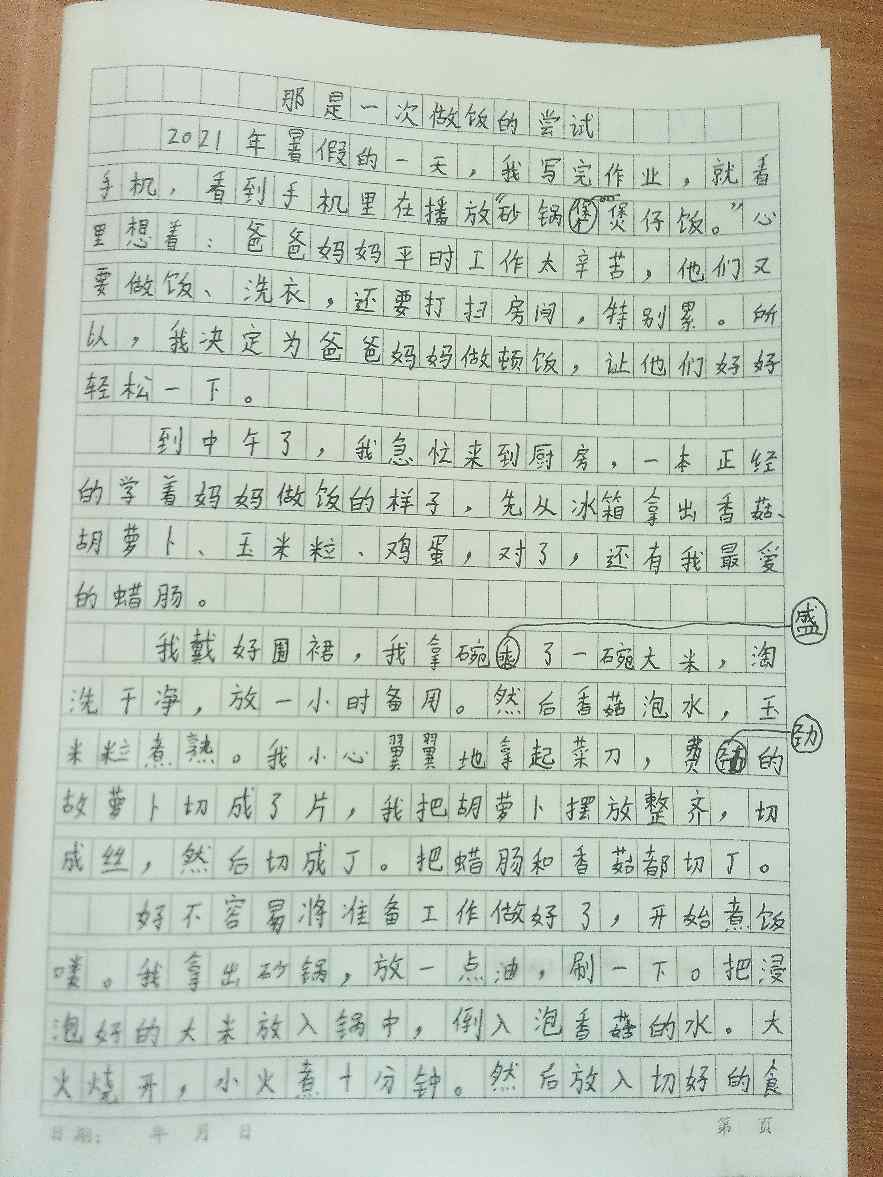 那是一次做饭的尝试
2021年暑假的一天，我写完作业，就看
手机，看到手机里在播放“砂锅煲仔饭。”心
里想着：爸爸妈妈平时工作太辛苦，他们又
要做饭、洗衣，还要打扫房间，特别累。所
以，我决定为爸爸妈妈做顿饭，让他们好好
轻松一下。
到中午了，我急忙来到厨房，一本正经
的学着妈妈做饭的样子，先从冰箱拿出香菇、
胡萝卜、玉米粒、鸡蛋，对了，还有我最爱
的蜡肠。
盛
我戴好围裙，我拿碗了一碗大米，淘
洗干净，放一小时备用。然后香菇泡水，玉
劲
米粒煮熟。我小心翼翼地拿起菜刀，费的
故萝卜切成了片，我把胡萝卜摆放整齐，切
成丝，然后切成丁。把蜡肠和香菇都切丁。
好不容易将准备工作做好了，开始煮饭
喽。我拿出砂锅，放一点油，刷一下。把浸
泡好的大米放入锅中，倒入泡香菇的水。大
火烧开，小火煮十分钟。然后放入切好的食
日期： 年 月 日
第 页